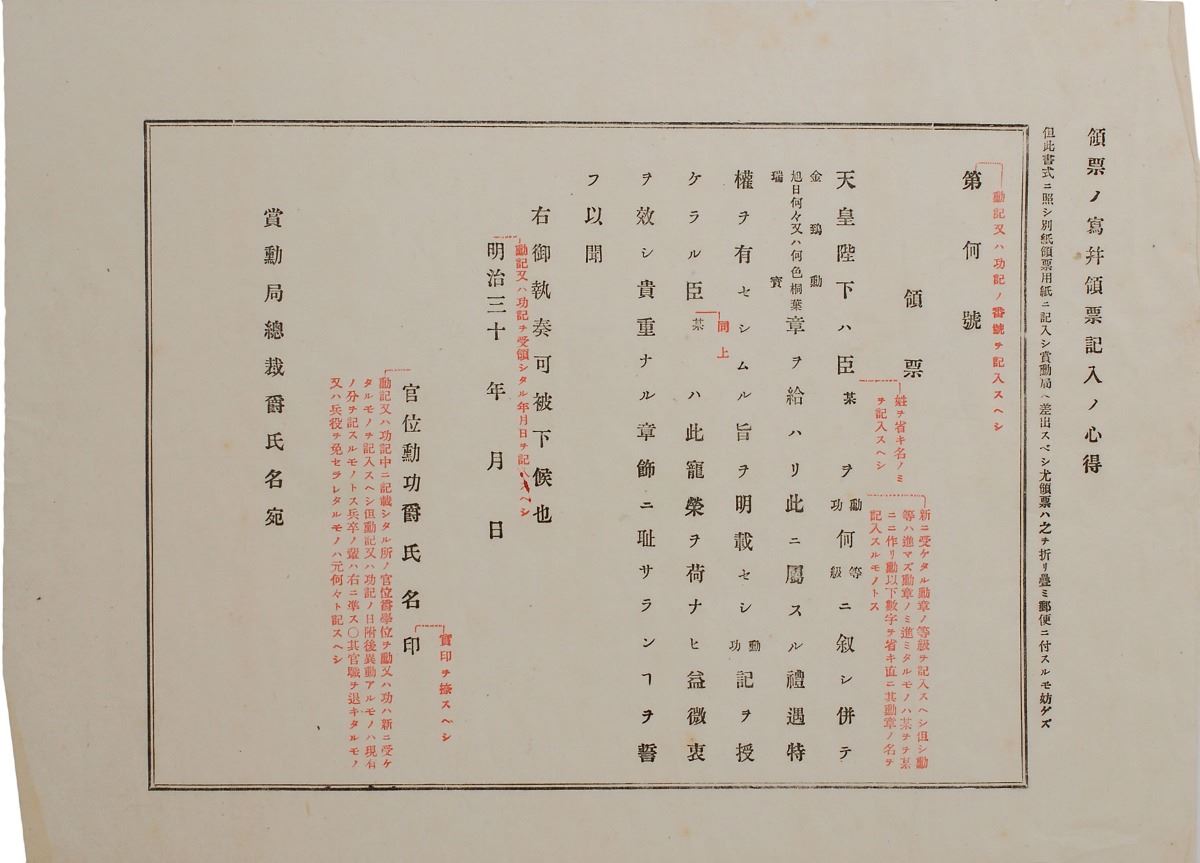 領票ノ寫幷領票記入ノ心得
但此書式ニ照シ別紙領票用紙ニ記入シ賞勳局ヘ差出スベシ尤領票ハ之ヲ折リ疊ミ郵便ニ付スルモ妨ゲズ
勳記又ハ功記ノ番號ヲ記入スヘシ
第何號
領票
新ニ受ケタル勳章ノ等級ヲ記入スヘシ但シ勳
等ハ進マズ勳章ノミ進ミタルモノハ某ヲヲ某
ニニ作リ勳以下數字ヲ省キ直ニ其勳章ノ名ヲ
記入スルモノトス
姓ヲ省キ名ノミ
ヲ記入スヘシ
天皇陛下ハ臣某ヲ勳功何等級ニ叙シ併テ
金鵄勳
旭日何々又ハ何色桐葉
瑞寶
章ヲ給ハリ此ニ屬スル禮遇特
權ヲ有セシムル旨ヲ明載セシ勳功記ヲ授
同上
ケラル臣某ハ此寵榮ヲ荷ナヒ益微衷
ヲ效シ貴重ナル章飾ニ耻サランヿヲ誓
フ以聞
右御執奏可被下候也
勳記又ハ功記ヲ受領シタル年月日ヲ記入スヘシ
明治三十年月日
實印ヲ捺スヘシ
官位勳功爵氏名印
勳記又ハ功記中ニ記載シタル所ノ官位爵學位ヲ勳又ハ功ハ新ニ受ケ
タルモノヲ記入スヘシ但勳記又ハ功記ノ日附後異動アルモノハ現有
ノ分ヲ記スルモノトス兵卒ノ輩ハ右ニ準ス〇其官職ヲ退キタルモノ
又ハ兵役ヲ免セラレタルモノハ元何々ト記スヘシ
賞勳局總裁爵氏名宛